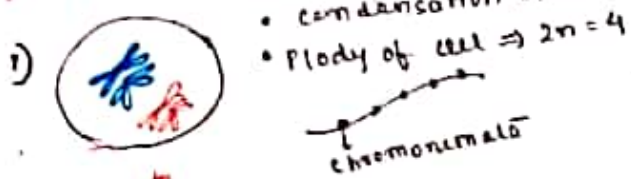 • condensation
1)
• Plody of cell ⇒ 2n = 4
chromonemata